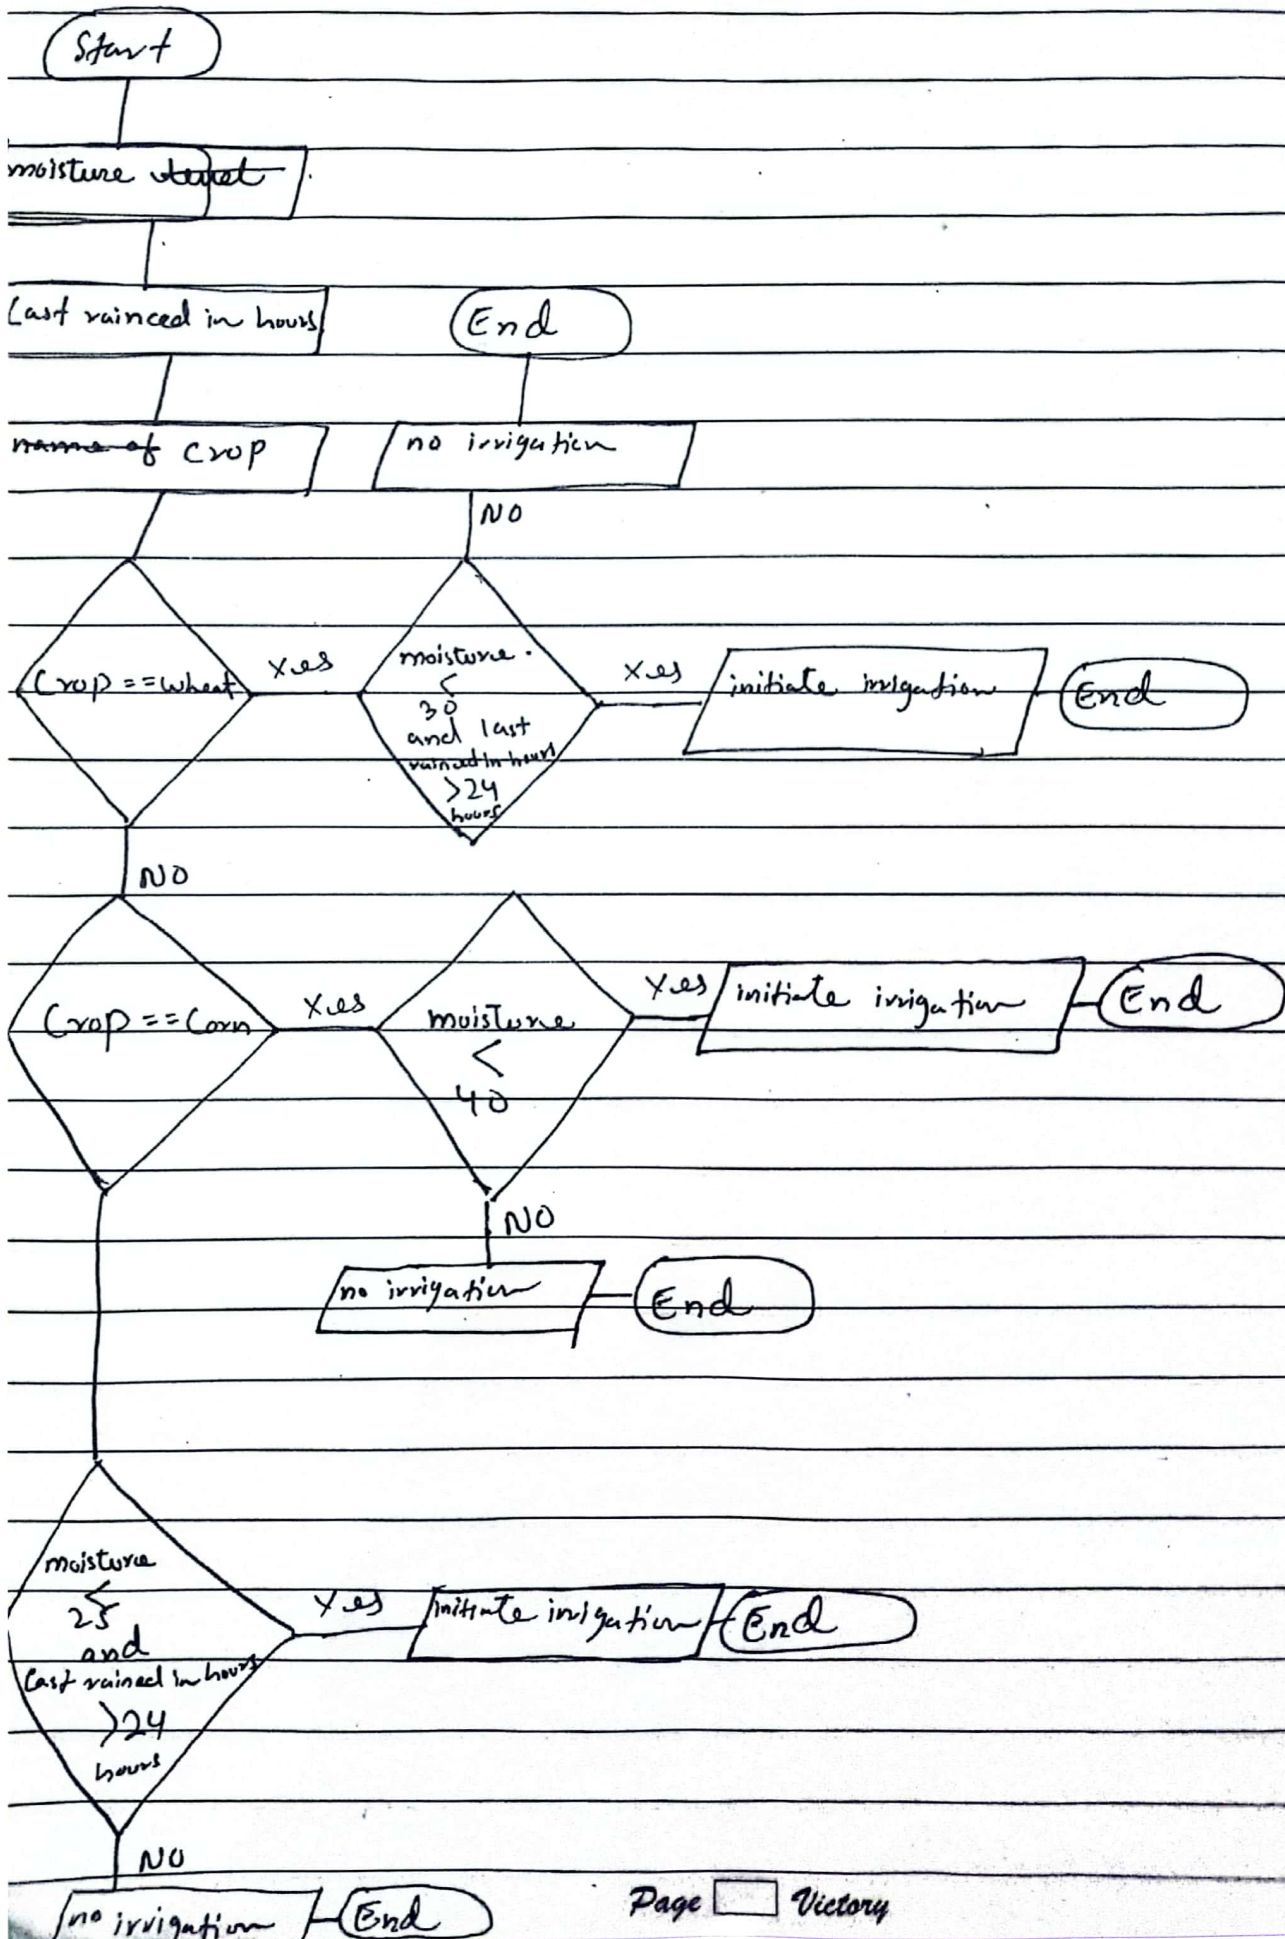 Start
moisture
Last rainced in hours
End
name of crop
no irrigation
NO
Crop ==wheat
Yes
moisture
<
30
and last
rained in hours
>24
hours
Yes
initiate irrigation
End
NO
Crop ==Corn
Yes
moisture
<
40
Yes
initiate irrigation
End
NO
no irrigation
End
moisture
<
25
and
Last rained in hours
>24
hours
Yes
initiate irrigation
End
NO
no irrigation
End
Page Victory